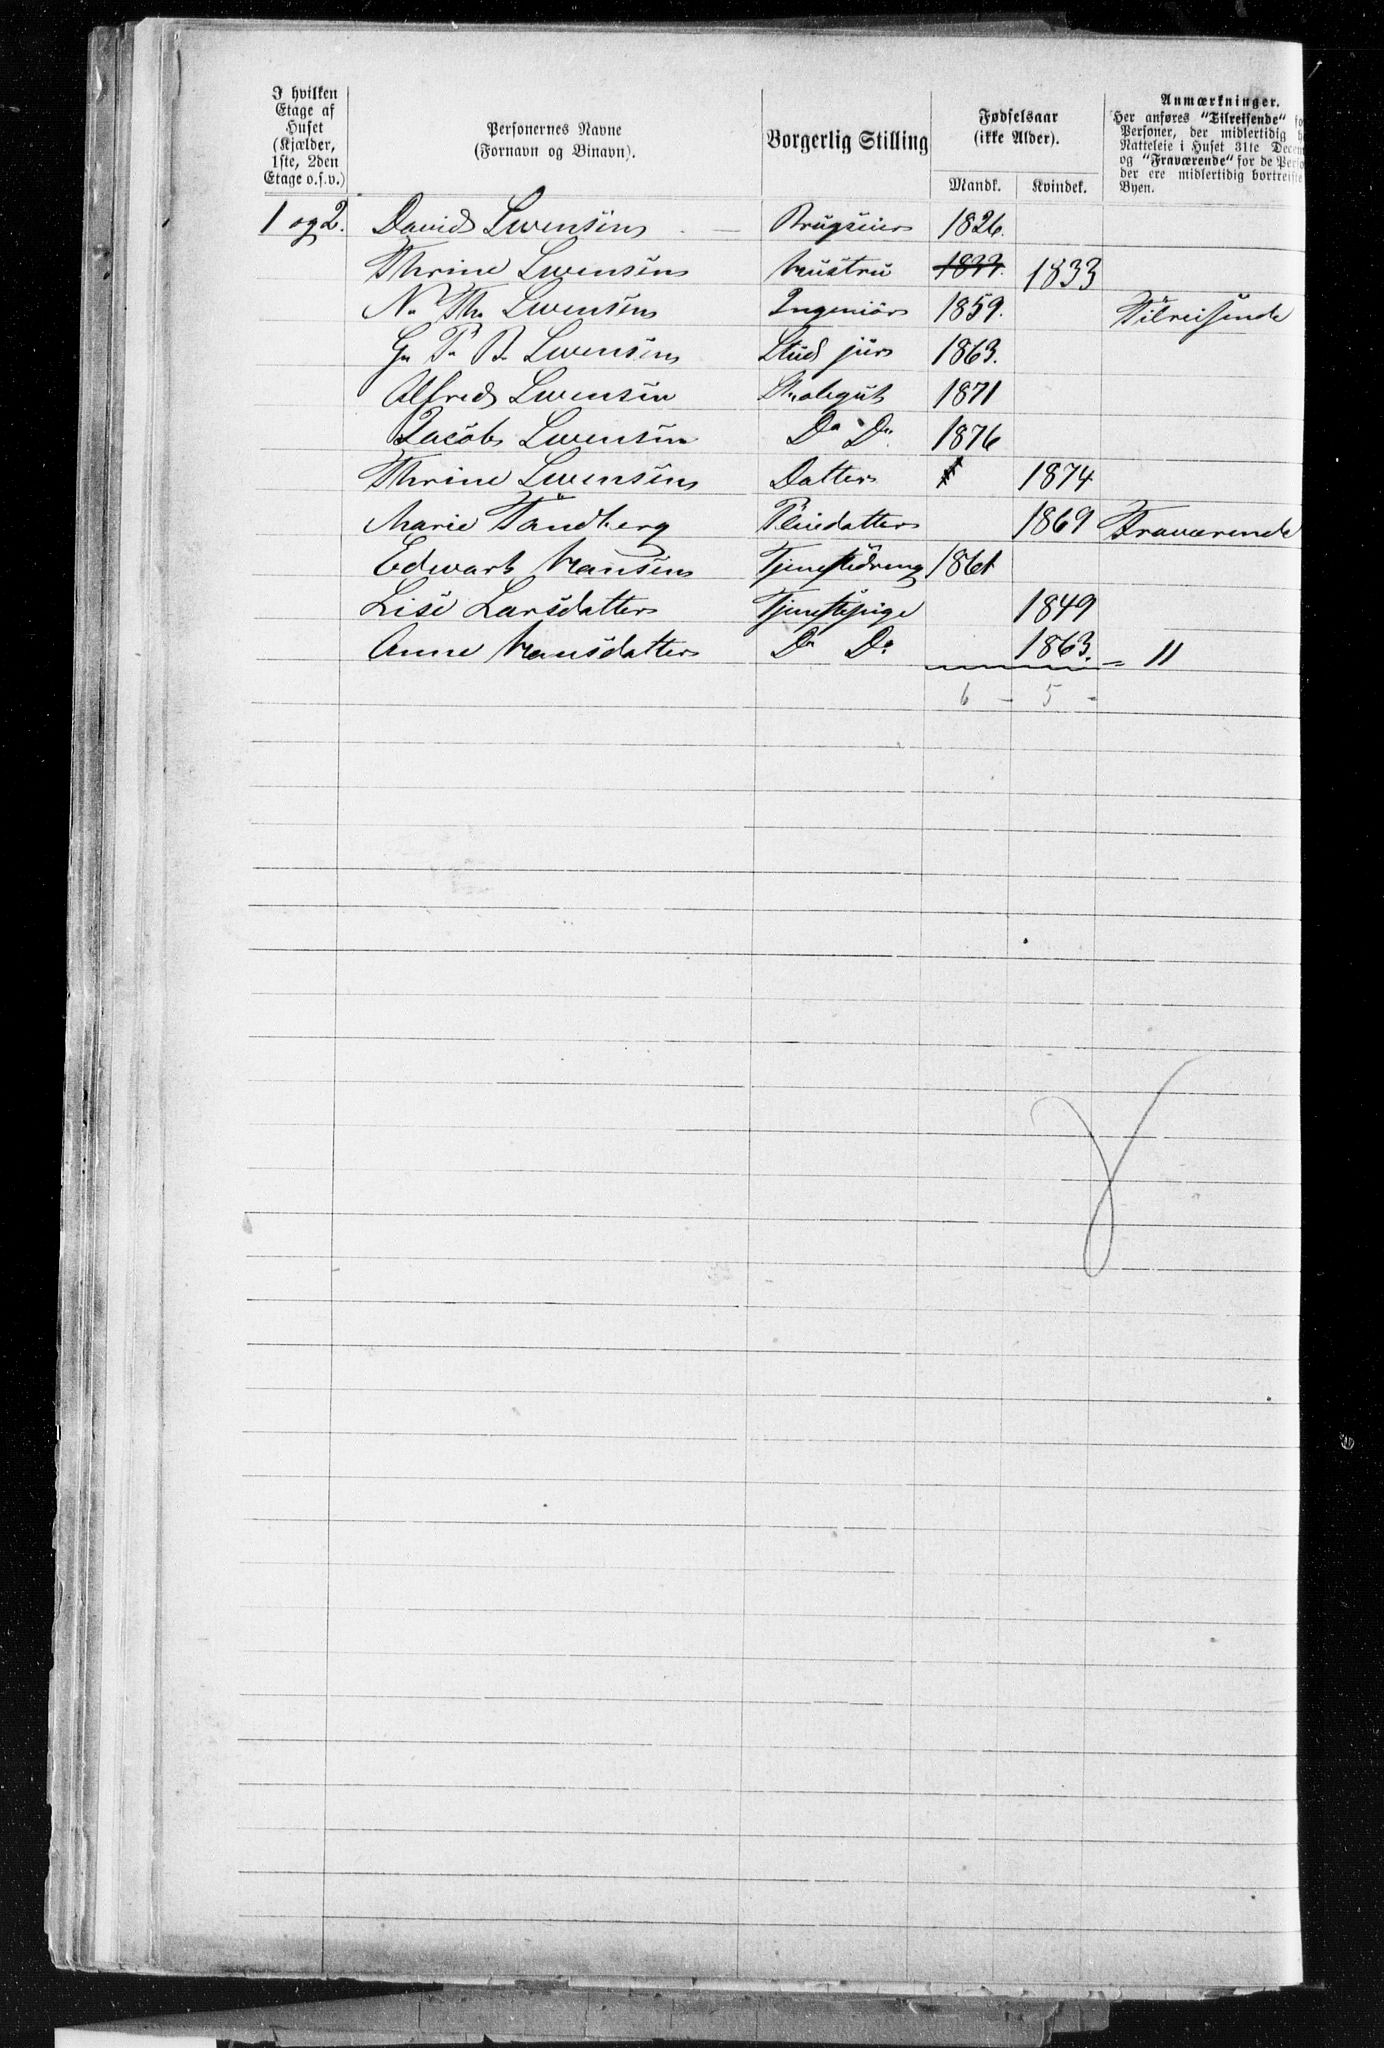 I hvilken Etage af Huset (Kjælder, 1ste, 2den Etage o.s.v.)
Personernes Navne (Fornavn og Binavn).
Borgerlig Stilling
Fødselsaar (ikke Alder).
Mandk. Kvindek.
Anmærkninger.
Her anføres "Tilreisende"
Personer, der midlertidig
Natteleie i Huset 31te
og "Fraværende" for de
der ere midlertidig bortreiste
Byen.
1 og 2. David Swensen — Brugseier 1826.
Thrine Swensen Hustru 1833. 1833
N. Th. Swensen Ingeniør 1859. Tilreisende
G. P. B. Swensen Stud jur 1863.
Alfred Swensen Skolegut 1871
Jacob Swensen Do Do 1876
Thrine Swensen Datter 1874
Marie Tandberg Pleiedatter 1869 Fraværende
Edwart Hansen Tjenestedreng 1861
Lise Larsdatter Tjenestepige 1849
Anne Hansdatter Do Do 1863. = 11
6 - 5 -